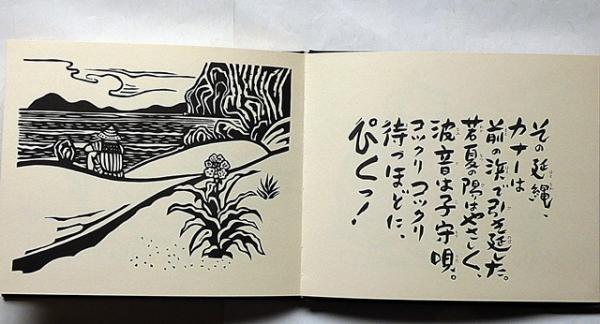 その延縄、
カナーは
前の浜で引き延した。
若夏の陽はやさしく、
波音は子守唄。
コックリコックリ
待つほどに、
ぴくっ!